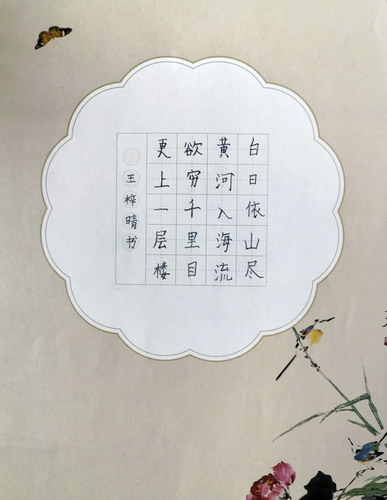 白日依山尽
黄河入海流
欲穷千里目
更上一层楼
王梓晴书